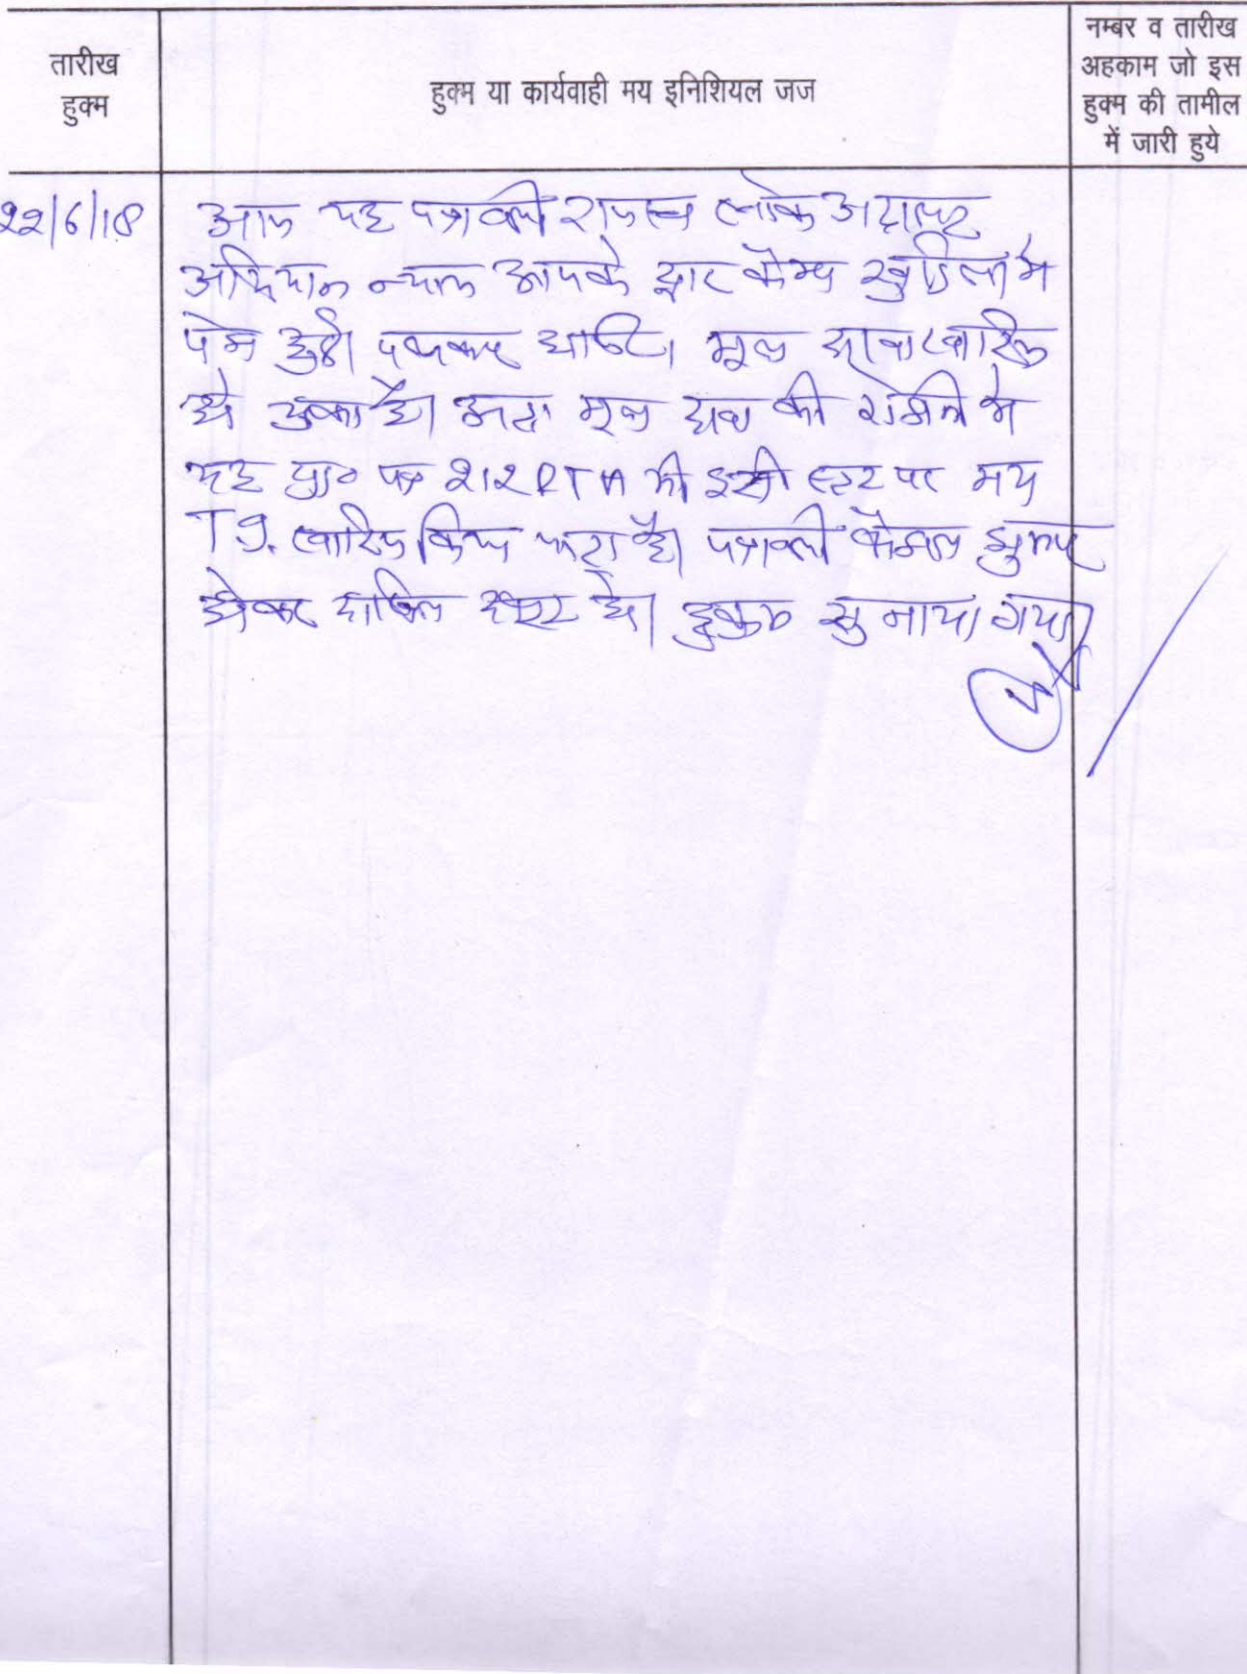 तारीख
हुक्म
हुक्म या कार्यवाही मय इनिशियल जज
नम्बर व तारीख
अहकाम जो इस
हुक्म की तामील
में जारी हुये
22/6/18 आज यह पत्रावली राजस्व लोक अदालत
अभियान न्याय आपके द्वार कैम्प में
पेश हुई। मूल दावा खारिज
हो चुका है। अतः मूल दावा की रोशनी में
यह प्रा० पत्र 212 RTA को इसी स्टेज पर मय
T.I. खारिज किया जाता है। पत्रावली फैसल शुमार
होकर दाखिल दफ्तर हो। हुकुम सुनाया गया।